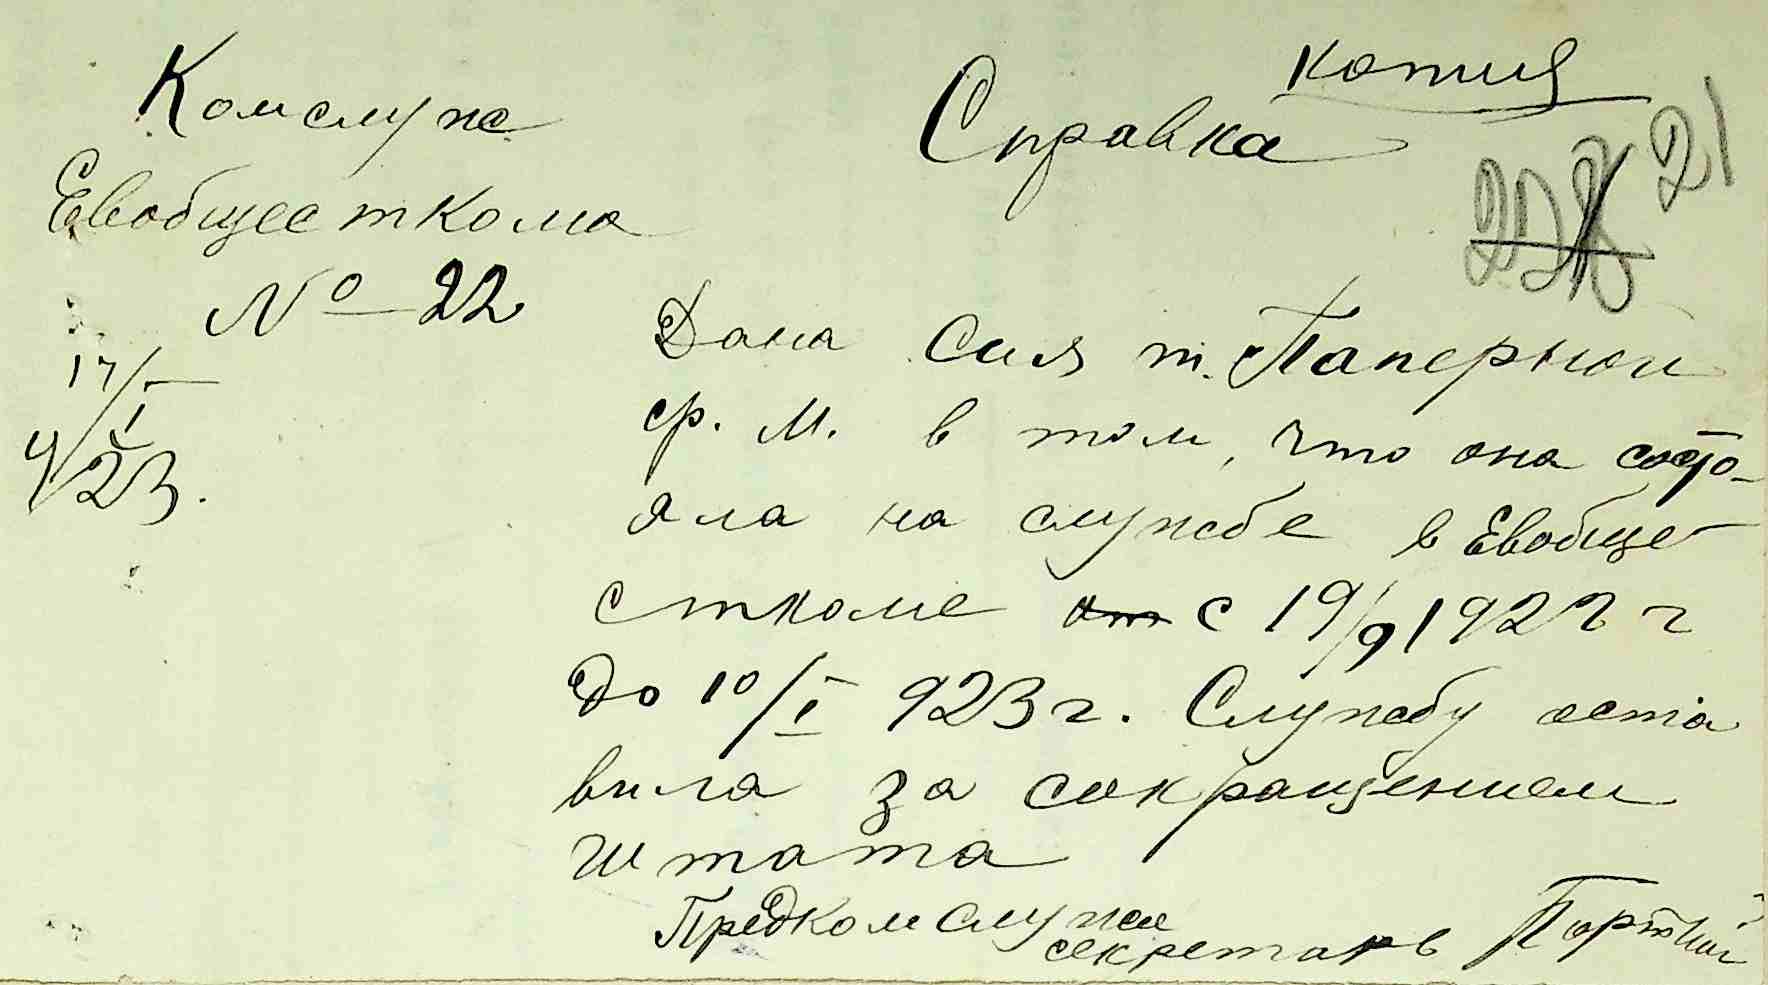 копия
Комслуж
Евобщесткома
№ 22
17/I
23.
Справка
21
Дана Сия т. Паперной
ср. М. в том, что она состо-
яла на службе в Евобще-
сткоме от с 19/9 1922 г
до 10/I 923 г. Службу оста
вила за сокращением
штата
Предкомслуж
секретарь Портной